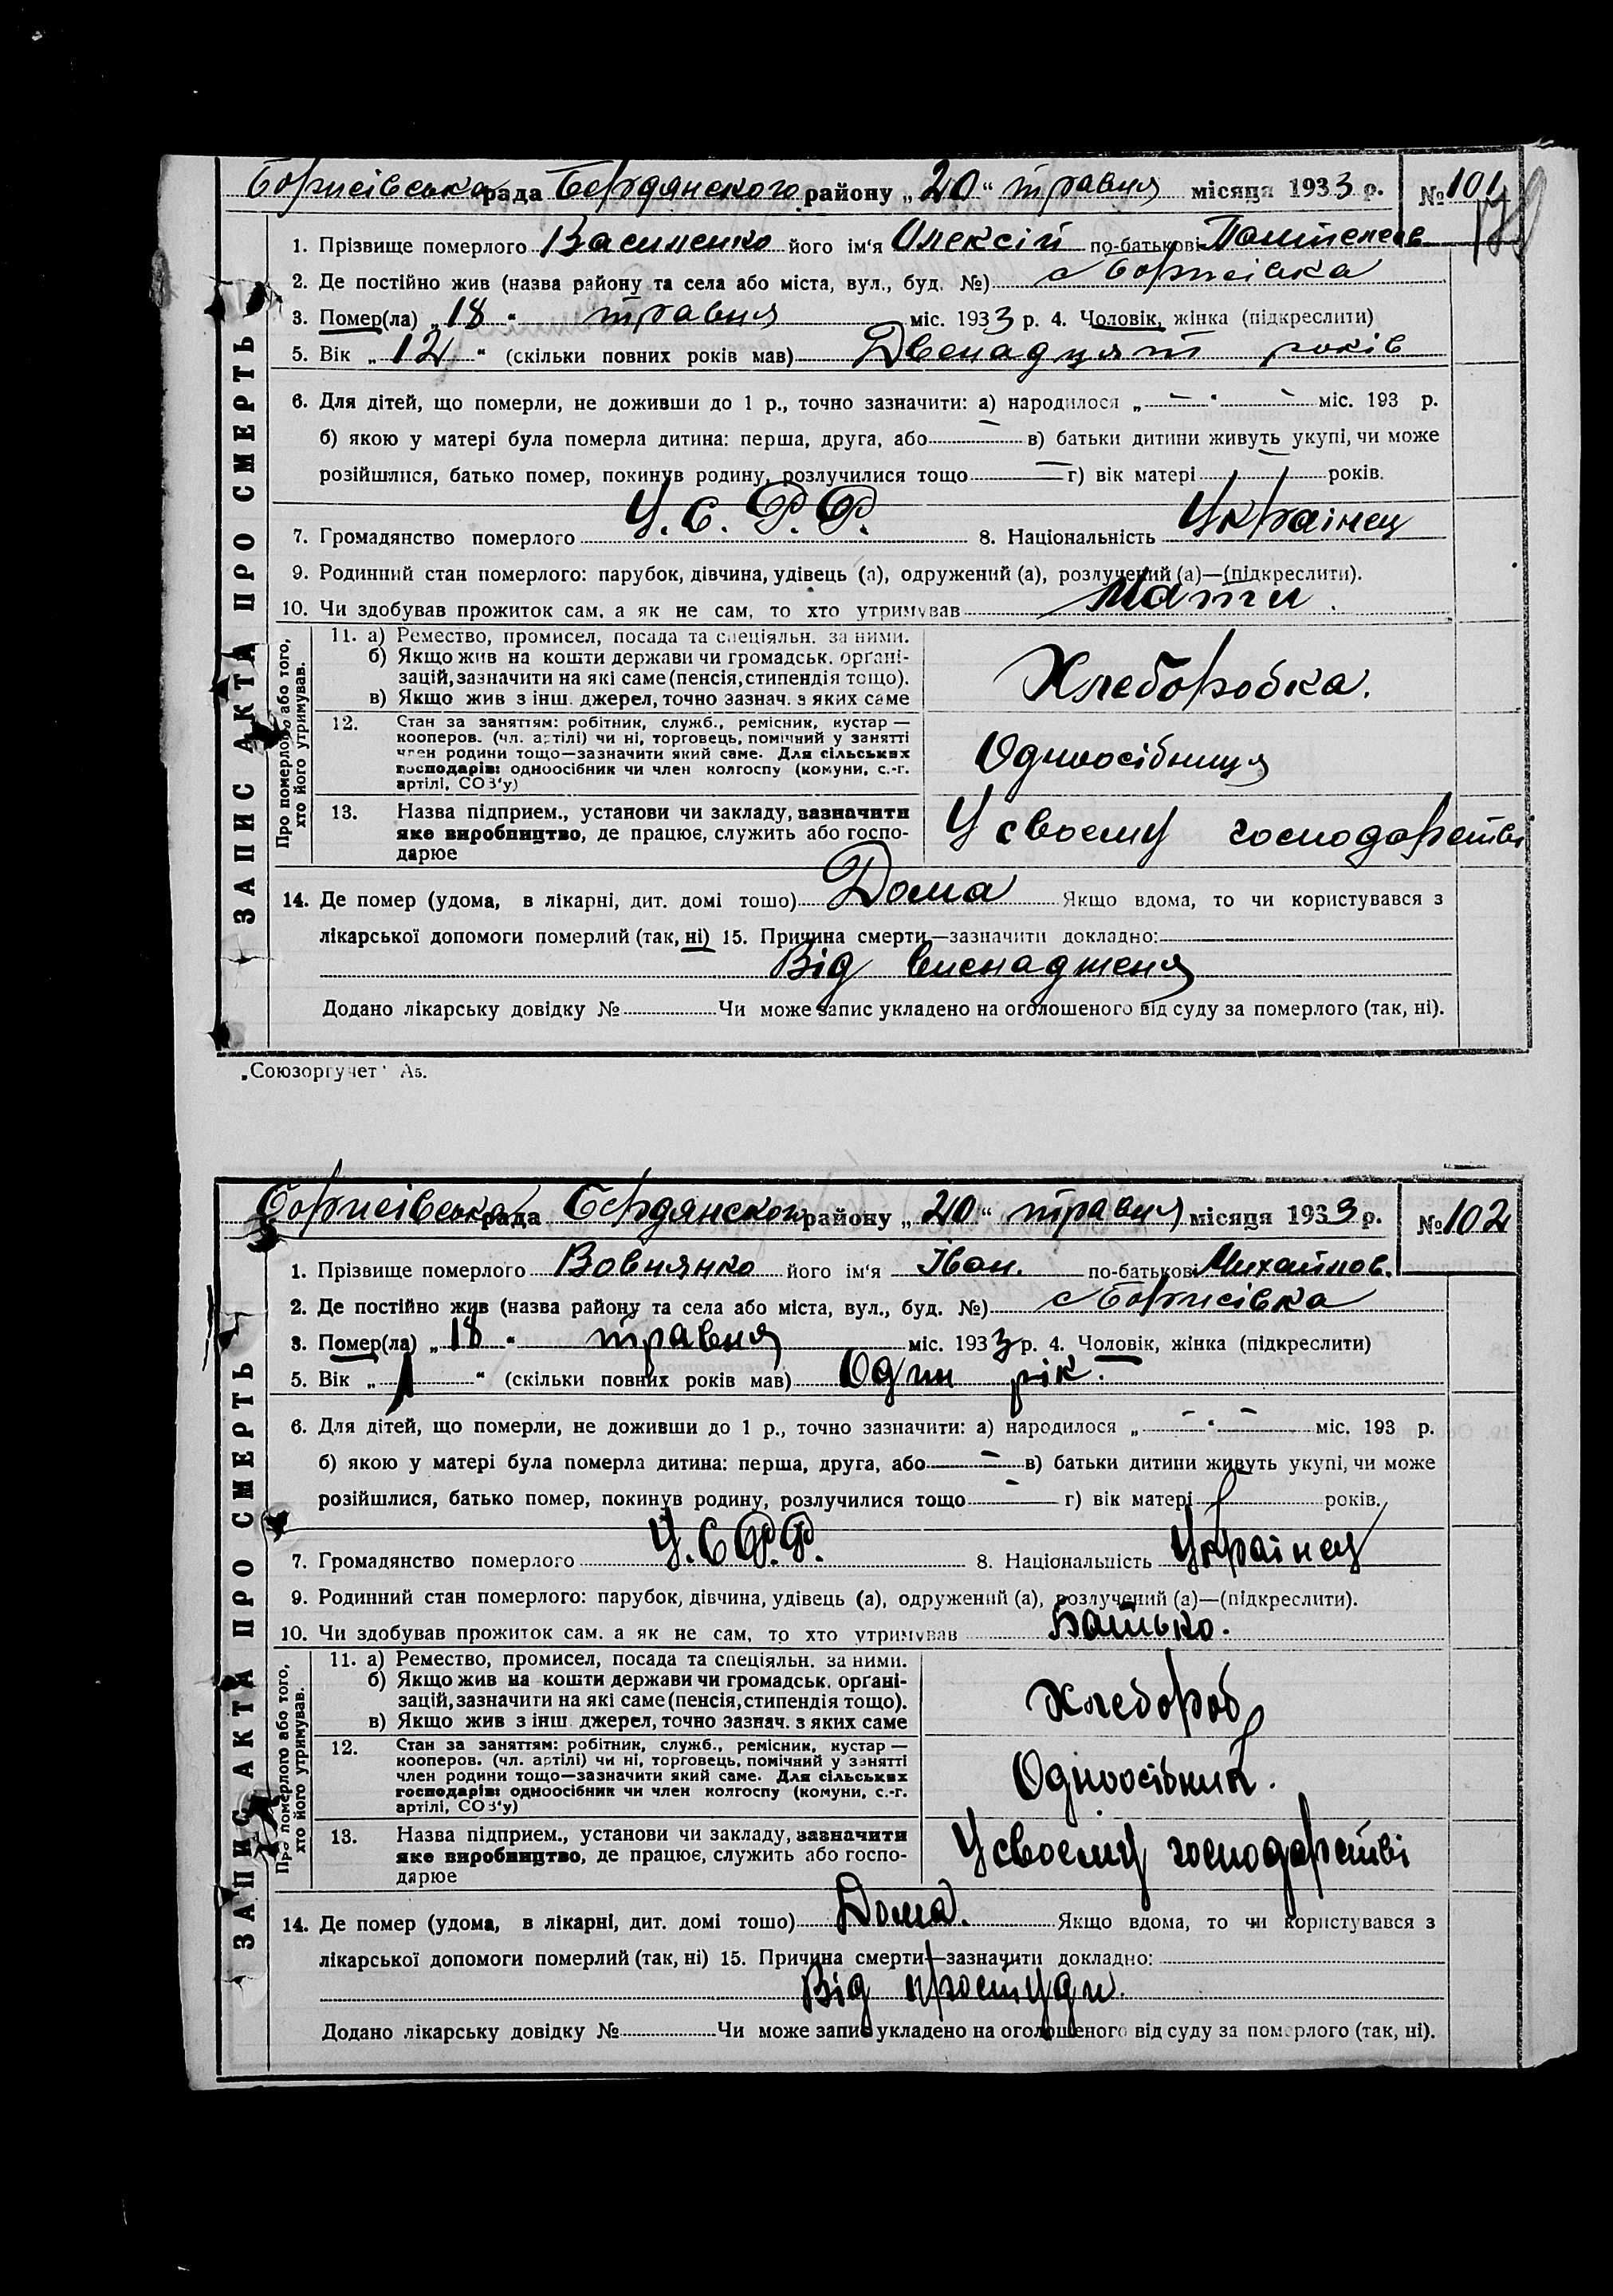 Борисівська рада Бердянского району „20“ травня місяця 1933 р. № 101
1. Прізвище померлого Василенко його ім'я Олексій по-батькові Пантелеєв
2. Де постійно жив (назва району та села або міста, вул., буд. №) с Борисівка
3. Помер(ла) „18“ травня міс. 1933 р. 4. Чоловік, жінка (підкреслити)
5. Вік „12“ (скільки повних років мав) Двенадцят років
6. Для дітей, що померли, не доживши до 1 р., точно зазначити: а) народилося „—“ — міс. 193 р.
б) якою у матері була померла дитина: перша, друга, або — в) батьки дитини живуть укупі, чи може
розійшлися, батько помер, покинув родину, розлучилися тощо — г) вік матері — років.
7. Громадянство померлого У.С.Р.Р. 8. Національність Українец
9. Родинний стан померлого: парубок, дівчина, удівець (а), одружений (а), розлучений (а)—(підкреслити).
10. Чи здобував прожиток сам, а як не сам, то хто утримував Мати.
ЗАПИС АКТА ПРО СМЕРТЬ
Про померлого або того,
хто його утримував.
11. а) Ремество, промисел, посада та спеціяльн. за ними.
б) Якщо жив на кошти держави чи громадськ. органі-
зацій, зазначити на які саме (пенсія, стипендія тощо).
в) Якщо жив з інш. джерел, точно зазнач. з яких саме
Хлеборобка.
12. Стан за заняттям: робітник, служб., ремісник, кустар —
кооперов. (чл. артілі) чи ні, торговець, помічний у занятті
член родини тощо—зазначити який саме. Для сільських
господарів: одноосібник чи член колгоспу (комуни, с.-г.
артілі, СОЗ'у)
Одноосібниця
13. Назва підприєм., установи чи закладу, зазначити
яке виробництво, де працює, служить або госпо-
дарює
У своєму господарстві
14. Де помер (удома, в лікарні, дит. домі тощо) Дома Якщо вдома, то чи користувався з
лікарської допомоги померлий (так, ні) 15. Причина смерти—зазначити докладно:
Від виснаженя
Додано лікарську довідку № Чи може запис укладено на оголошеного від суду за померлого (так, ні).
„Союзоргучет" А5.
Борисівська рада Бердянског району „20“ травня місяця 1933 р. № 102
1. Прізвище померлого Вовнянко його ім'я Іван. по-батькові Михайлов.
2. Де постійно жив (назва району та села або міста, вул., буд. №) с Борисівка
3. Помер(ла) „18“ травня міс. 1933 р. 4. Чоловік, жінка (підкреслити)
5. Вік „1“ (скільки повних років мав) Один рік.
6. Для дітей, що померли, не доживши до 1 р., точно зазначити: а) народилося „—“ — міс. 193 р.
б) якою у матері була померла дитина: перша, друга, або — в) батьки дитини живуть укупі, чи може
розійшлися, батько помер, покинув родину, розлучилися тощо — г) вік матері років.
7. Громадянство померлого У.С.Р.Р. 8. Національність Українец
9. Родинний стан померлого: парубок, дівчина, удівець (а), одружений (а), розлучений (а)—(підкреслити).
10. Чи здобував прожиток сам, а як не сам, то хто утримував Батько.
ЗАПИС АКТА ПРО СМЕРТЬ
Про померлого або того,
хто його утримував.
11. а) Ремество, промисел, посада та спеціяльн. за ними.
б) Якщо жив на кошти держави чи громадськ. органі-
зацій, зазначити на які саме (пенсія, стипендія тощо).
в) Якщо жив з інш. джерел, точно зазнач. з яких саме
Хлебороб
12. Стан за заняттям: робітник, служб., ремісник, кустар —
кооперов. (чл. артілі) чи ні, торговець, помічний у занятті
член родини тощо—зазначити який саме. Для сільських
господарів: одноосібник чи член колгоспу (комуни, с.-г.
артілі, СОЗ'у)
Одноосібник.
13. Назва підприєм., установи чи закладу, зазначити
яке виробництво, де працює, служить або госпо-
дарює
У своєму господарстві
14. Де помер (удома, в лікарні, дит. домі тощо) Дома. Якщо вдома, то чи користувався з
лікарської допомоги померлий (так, ні) 15. Причина смерти—зазначити докладно:
Від простуди.
Додано лікарську довідку № Чи може запис укладено на оголошеного від суду за померлого (так, ні).